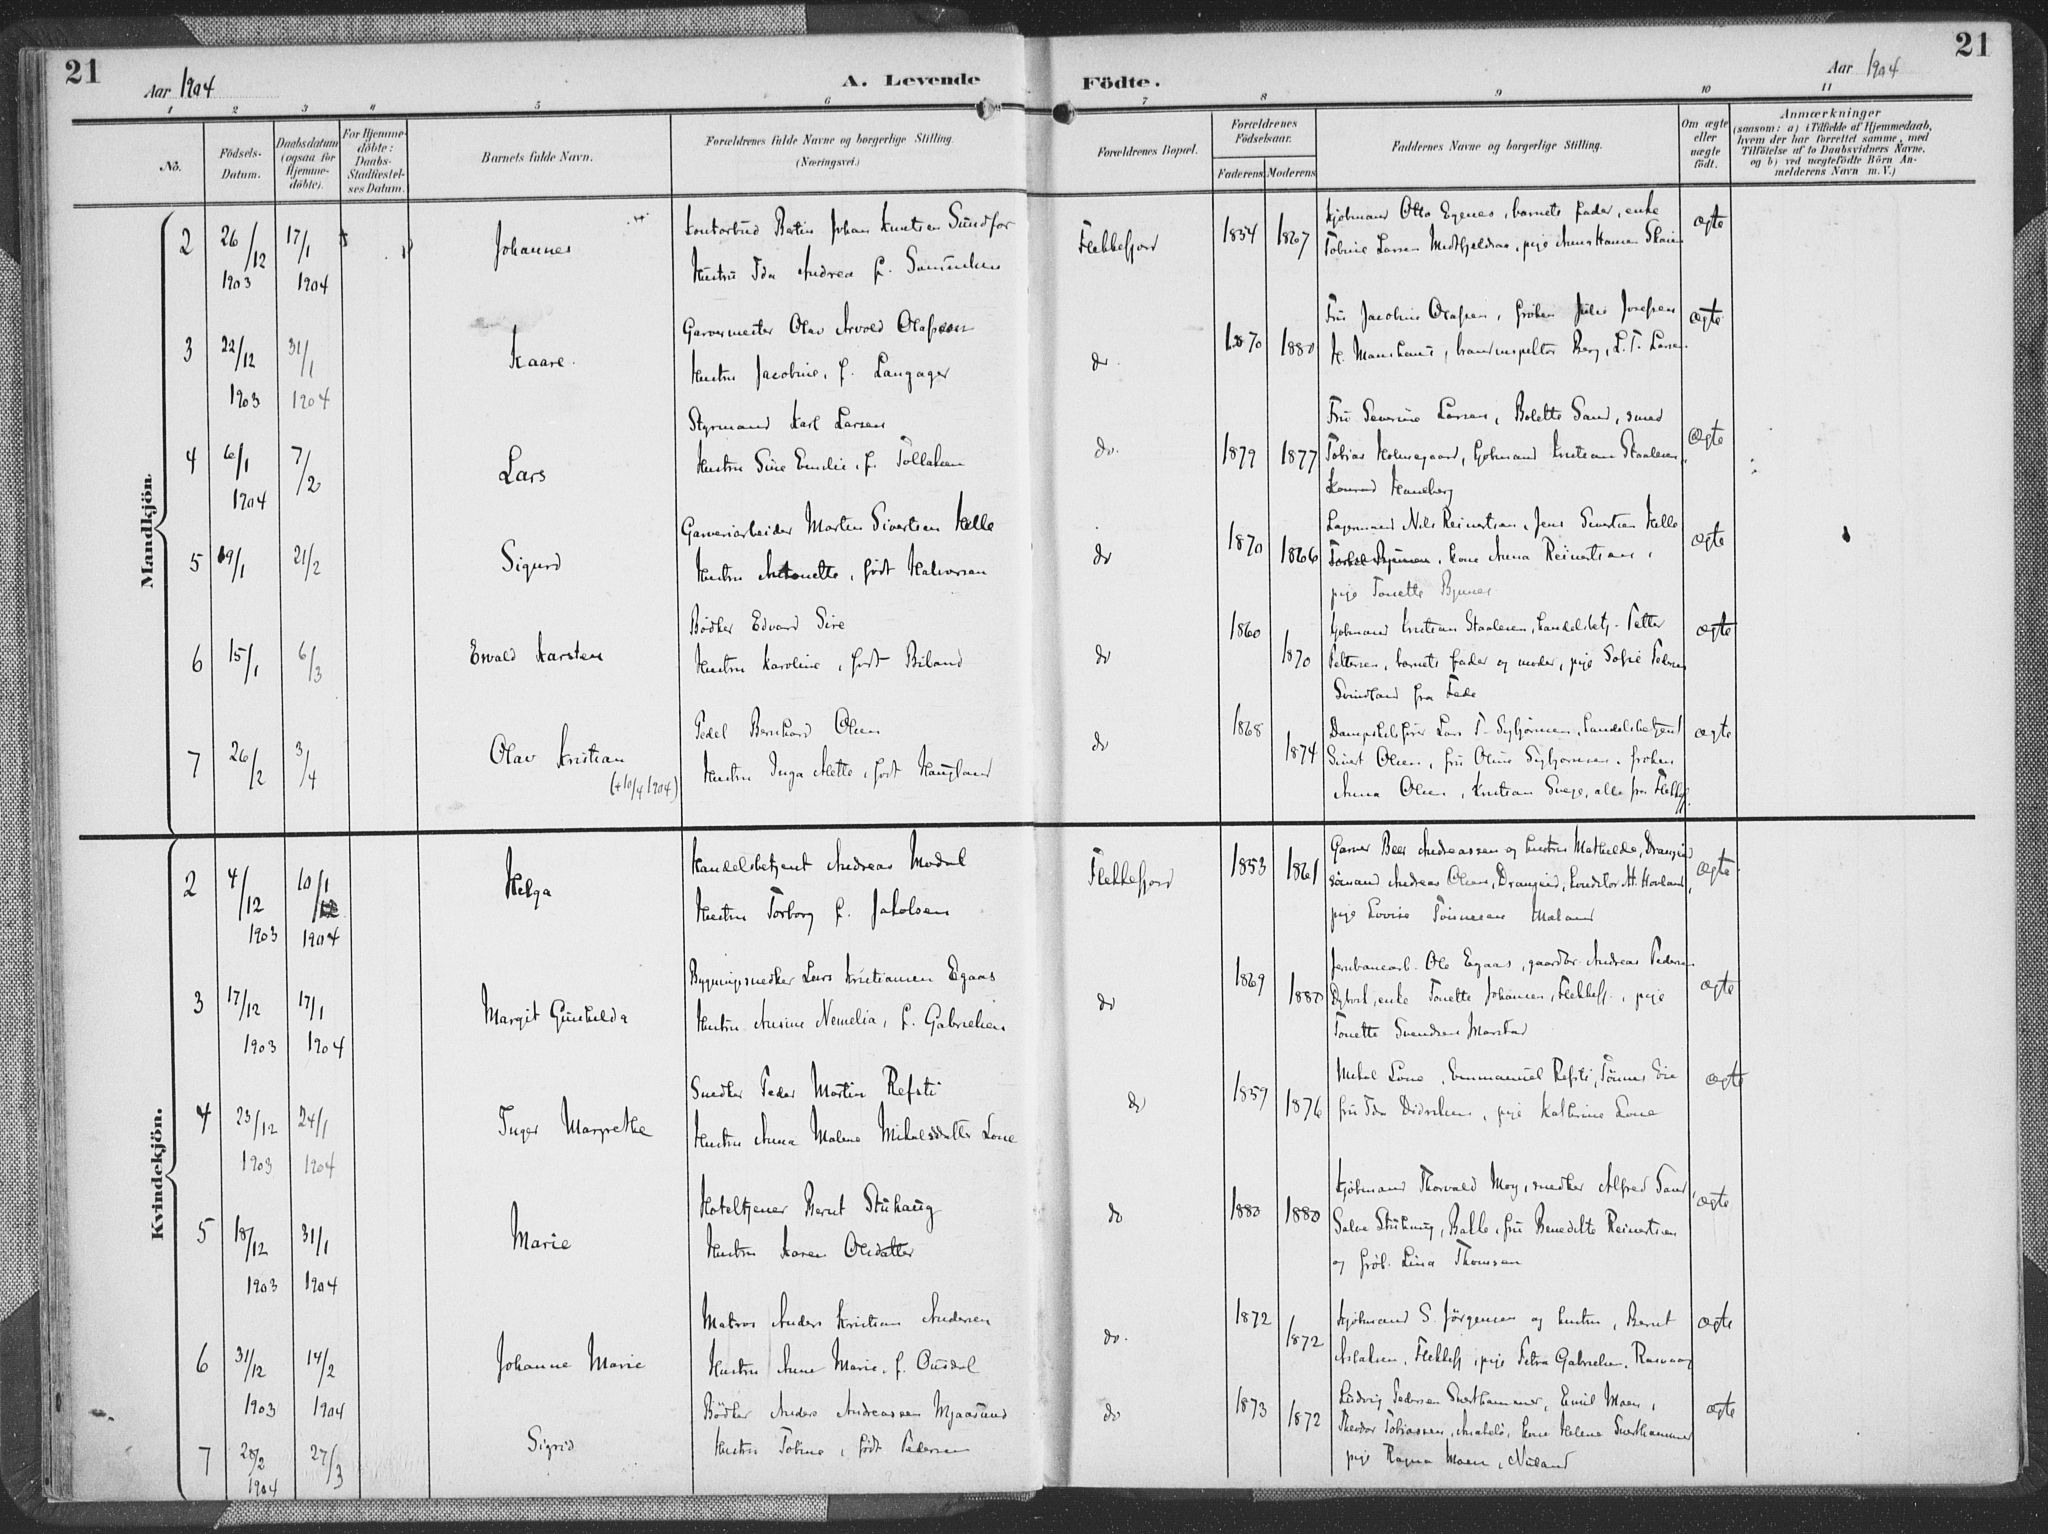 21
21
Aar 1904
A. Levende Födte.
Aar 1904
1 2 3 4 5 6 7 8 9 10 11
No.
Födsels-Datum.
Daabsdatum (ogsaa for Hjemme-döbte).
For Hjemme-döbte: Daabs-Stadfæstel-ses Datum.
Barnets fulde Navn.
Forældrenes fulde Navne og borgerlige Stilling.
(Næringsvei.)
Forældrenes Bopæl.
Forældrenes Födselsaar.
Faderens. Moderens.
Faddernes Navne og borgerlige Stilling.
Om ægte eller uægte födt.
Anmærkninger
(saasom: a) i Tilfælde af Hjemmedaab, hvem der har forrettet samme, med Tilföielse af to Daabsvidners Navne, og b) ved uægtefödte Börn An-melderens Navn m. V.)
Mandkjön.
2 26/12 1903 17/1 1904 Johannes
Kontorbud Bertin Johan Knutsen Sundfor
Hustru Ida Andrea f. Samuelsen
Flekkefjord 1854 1867
Kjøbmand Otto Egenes, barnets fader, enke
Tobine Larsen, pige Anna Hansen
ægte
3 22/12 1903 31/1 1904 Kaare.
Garvermester Olav Arvold Olafsen
Hustru Jacobine, f. Langager
do. 1870 1880
Fru Jacobine Olafsen, frøken Julie Josefsen
Berg, L. T. Larsen
ægte
4 6/1 1904 7/2 Lars
Styrmand Karl Larsen
Hustru Sine Emilie, f. Tollaksen
do. 1879 1877
Fru Severine Larsen, Bolette Sand, smed
Tobias Holmegaard, Kjøbmand Kristian Staalesen,
Konrad Haneberg
ægte
5 19/1 21/2 Sigurd
Garveriarbeider Martin Sivertsen Helle
Hustru Antonette, født Halvorsen
do 1870 1866
Lagermand Nils Reinertsen, Jens Sivertsen Helle
kone Anna Reinertsen,
pige Tonette
ægte
6 15/1 6/3 Ewald Karsten
Bødker Edvard Sire
Hustru Karoline, født Birland
do 1860 1870
Kjøbmand Kristian Staalesen, handelsbetj. Petter
Pettersen, barnets fader og moder, pige Sofie Pedersen
Svindland fra Feda
ægte
7 26/2 3/4 Olav Kristian
(+10/4 1904)
Pedel Bernhard Olsen
Hustru Inga Mette, født Haugland
do 1868 1874
Dampskibsfører Lars T. Sigbjørnsen, handelsbetjent
Sivert Olsen, fru Oline Sigbjørnsen, frøken
Anna Olsen, Kristian Svege, alle fra Flekkefj.
ægte
Kvindekjön.
2 4/12 1903 10/1 1904 Helga
Handelsbetjent Andreas Modal
Hustru Torborg f. Jakobsen
Flekkefjord 1853 1861
Garver Beer Andreassen og hustru Mathilde, Drangeid
sømand Andreas Olsen, Drangeid, Konditor M. Hovland,
pige Lovise Tønnesen Maland
ægte
3 17/12 1903 17/1 1904 Margit Gunhilda
Bygningssnedker Lars Kristiansen Egaas
Hustru Ansine Nemelia, f. Gabrielsen
do 1869 1880
Jernbanearb. Ole Egaas, gaardbr. Andreas Pedersen
enke Tonette Johansen, Flekkefj., pige
Tonette Svendsen
ægte
4 23/12 1903 24/1 1904 Inger Margrethe
Snedker Peder Martin Refsti
Hustru Anna Malene Mikalsdatter Lone
do 1859 1876
Mikal Lone, Emmanuel Refsti, Tønnes Eie
fru Ida Didriksen, pige Kathrine Lone
ægte
5 18/12 1903 31/1 1904 Marie
Hoteltjener Bernt Stuhaug
Hustru Karen Olsdatter
do 1880 1880
Kjøbmand Thorvald Moy, snedker Alfred Sand,
Salve Stuhaug, Bakke, fru Benedikte Reinertsen
og frøk. Lina Thomsen
ægte
6 31/12 1903 14/2 1904 Johanne Marie
Matros Anders Kristian Andersen
Hustru Anne Marie, f. Ousdal
do. 1872 1872
Kjøbmand S. Jørgensen og hustru, Bernt
Aslaksen, Flekkefj., pige Petra Gabrielsen, Rasvaag
ægte
7 28/2 1904 27/3 Sigrid
Bødker Anders Andreassen Mjaasund
Hustru Tobine, født Pedersen
do 1873 1872
Ludvig Pedersen Sverthammer, Emil Moen,
Theodor Tobiassen, Andabelø, kone Helene Sverthammer
pige Ragna Moen, Nuland
ægte